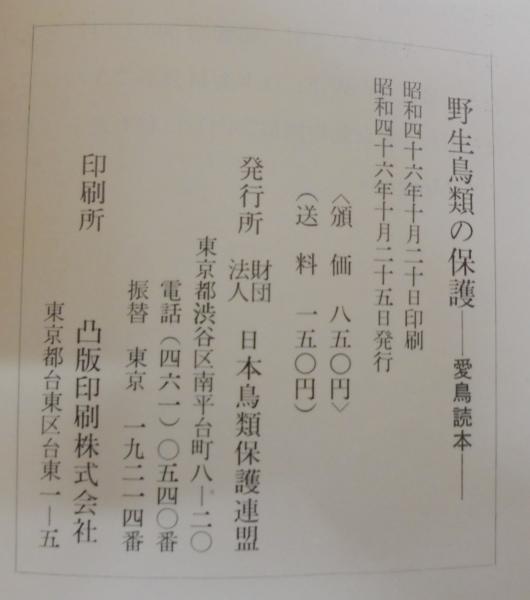 野生鳥類の保護――愛鳥読本――
昭和四十六年十月二十日印刷
昭和四十六年十月二十五日発行
〈頒価 八五〇円〉
（送料 一五〇円）
発行所 財団法人 日本鳥類保護連盟
東京都渋谷区南平台町八―二〇
電話（四六一）〇五四〇番
振替 東京 一九二一四番
印刷所 凸版印刷株式会社
東京都台東区台東一―五